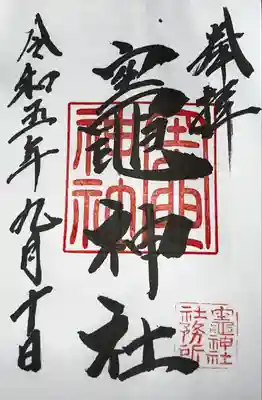 奉拝
竈神社
竈
神社
令和五年九月十日
竈神社
社務所